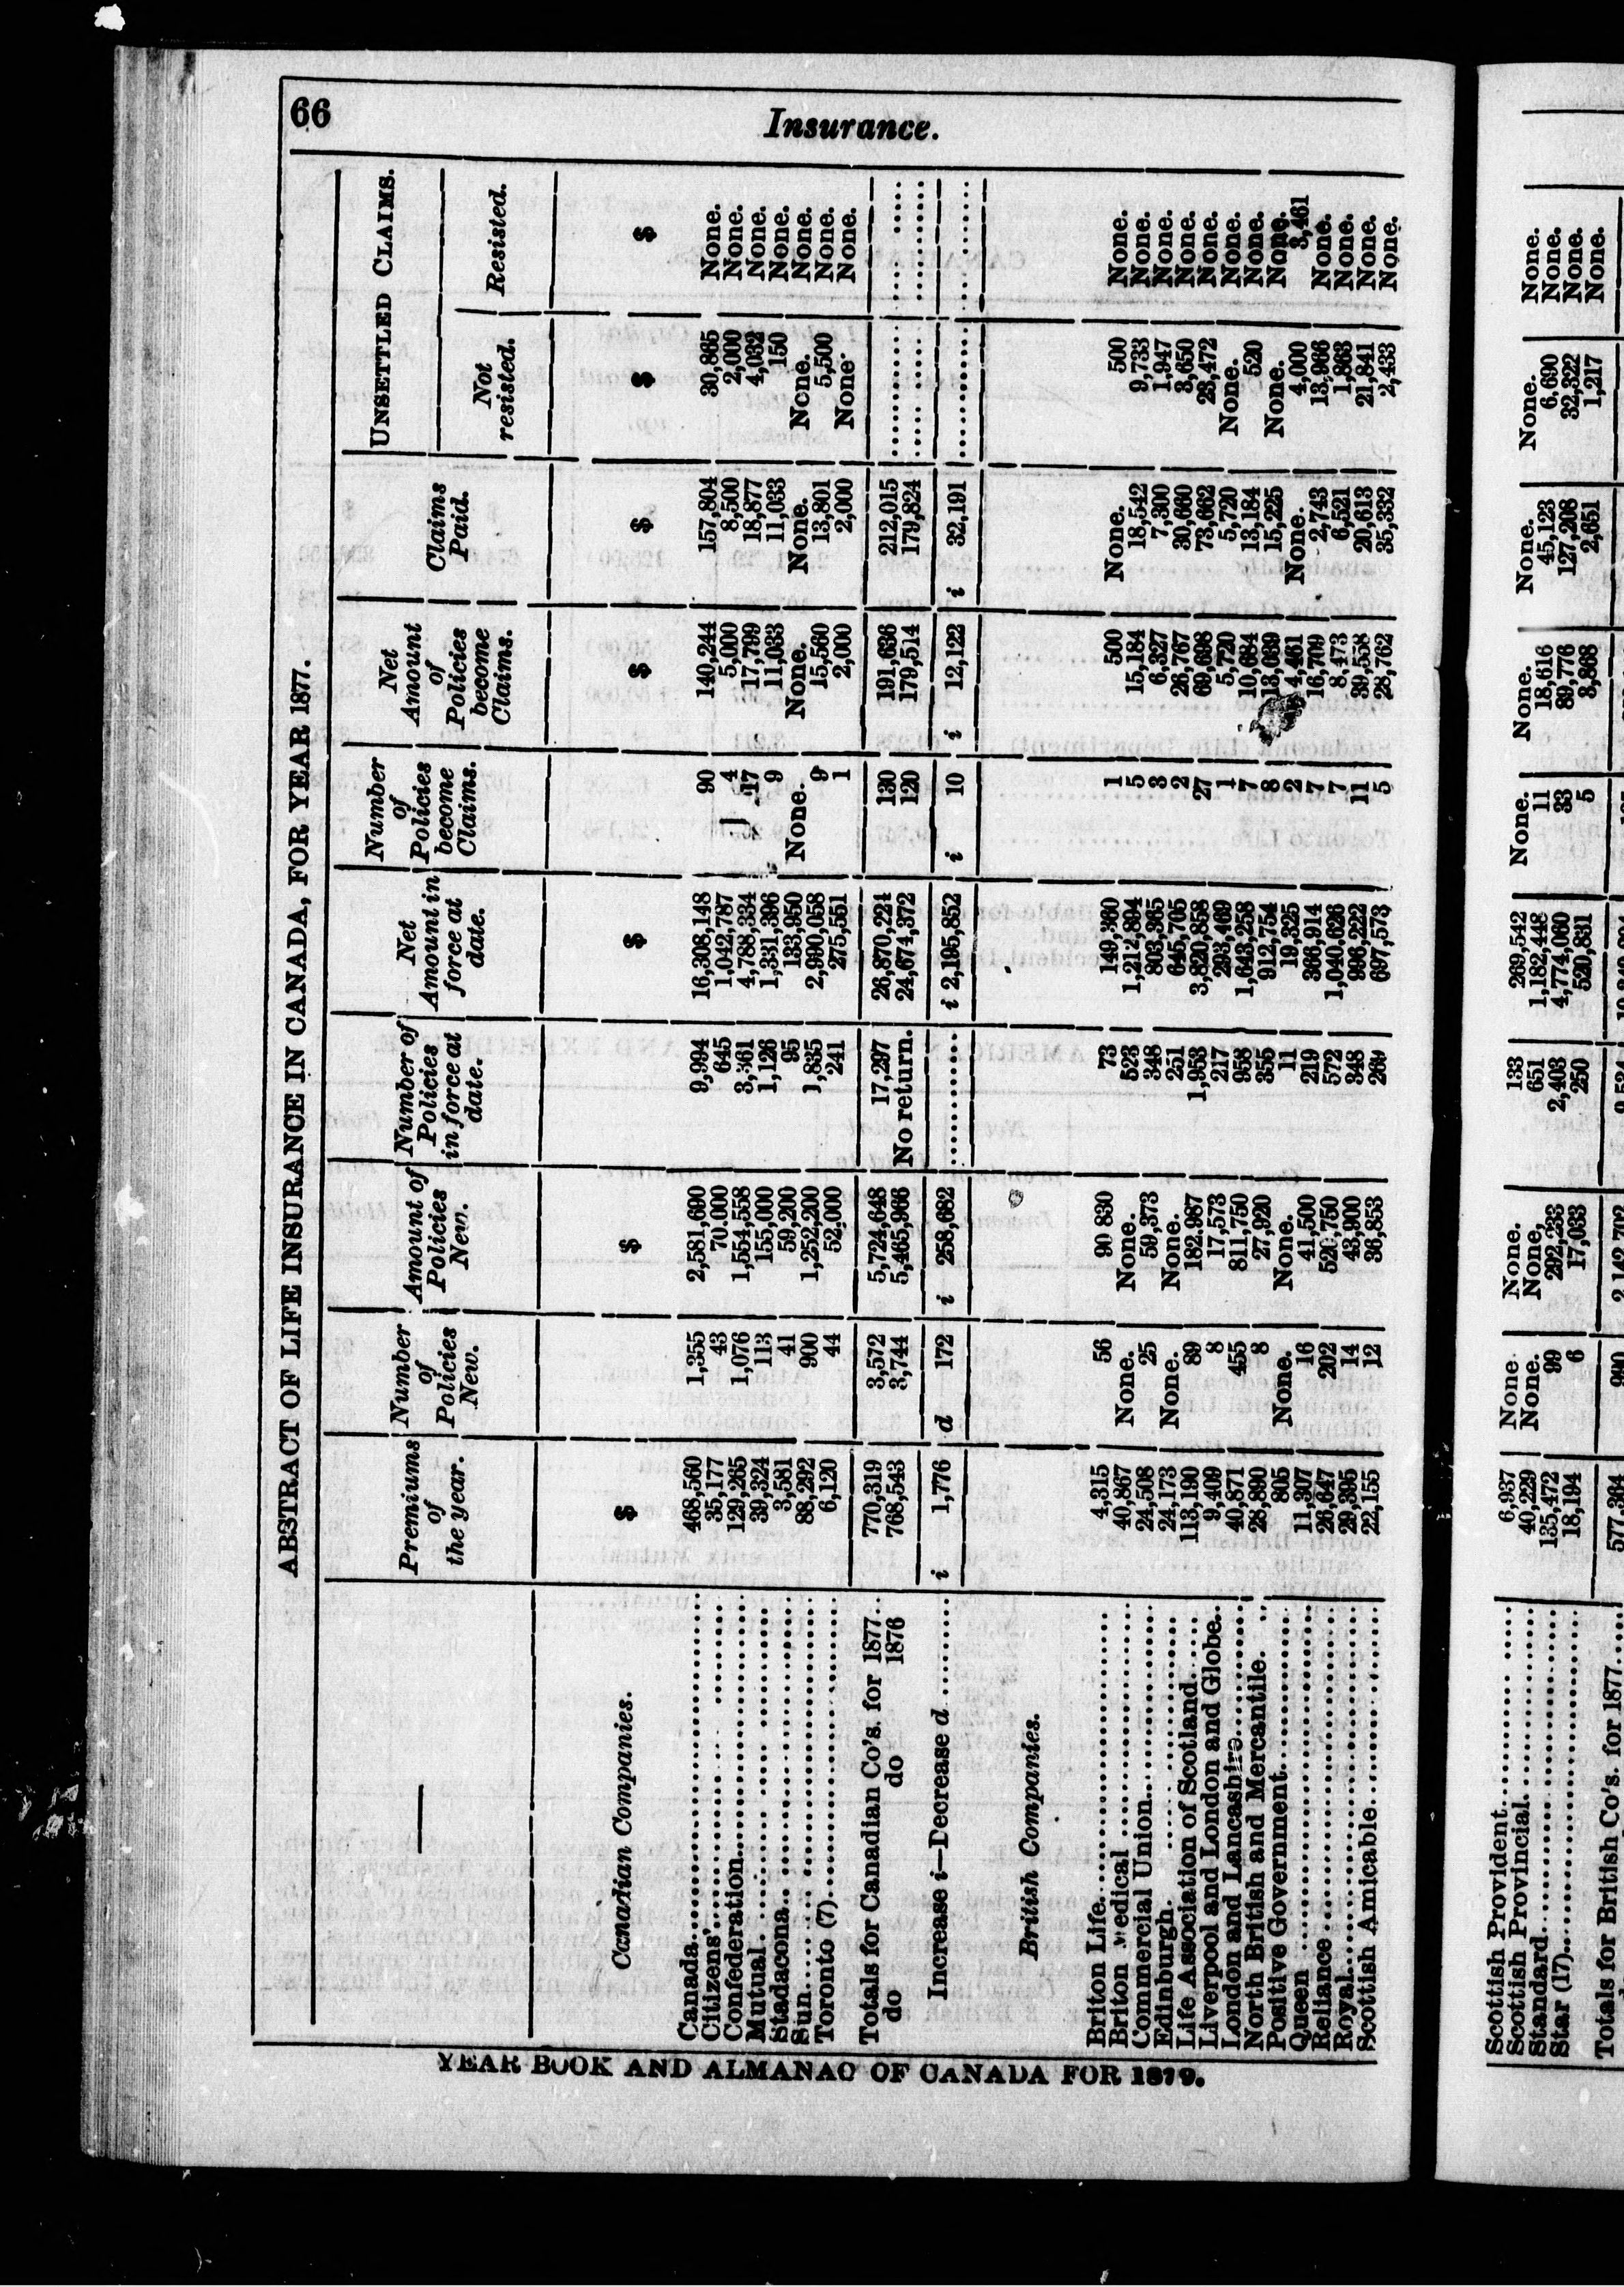 66
Insurance.
ABSTRACT OF LIFE INSURANCE IN CANADA, FOR YEAR 1877.
— Premiums of the year. Number of Policies New. Amount of Policies New. Number of Policies in force at date. Net Amount in force at date. Number of Policies become Claims. Net Amount of Policies become Claims. Claims Paid. UNSETTLED CLAIMS. Not resisted. Resisted.
Canadian Companies. $ $ $ $ $ $ $
Canada 468,560 1,355 2,581,690 9,994 16,308,148 90 140,244 157,804 30,865 None.
Citizens' 35,177 43 70.000 645 1,042,787 4 5,000 8,500 2,000 None.
Confederation 129,265 1,076 1,554,558 3,361 4,788,334 17 17,799 18,877 4,032 None.
Mutual 39,324 113 155,000 1,126 1,331,396 9 11,033 11,033 150 None.
Stadacona 3,581 41 59,200 95 133,950 None. None. None. None. None.
Sun 88,292 900 1,252,200 1,835 2,990,058 9 15,560 13,801 5,500 None.
Toronto (7) 6,120 44 52,000 241 275,551 1 2,000 2,000 None. None.
Totals for Canadian Co's. for 1877 770,319 3,572 5,724,648 17,297 26,870,224 130 191,636 212,015
do do 1876 768,543 3,744 5,465,966 No return. 24,674,372 120 179,514 179,824
Increase i—Decrease d i 1,776 d 172 i 258,682 i 2,195,852 i 10 i 12,122 i 32,191
British Companies.
Briton Life 4,315 56 90 830 73 149,360 1 500 None. 500 None.
Briton Medical 40,867 None. None. 523 1,212,894 5 15,184 18,542 9,733 None.
Commercial Union 24,508 25 59,373 348 803,365 3 6,327 7,300 1,947 None.
Edinburgh 24,173 None. None. 251 645,705 2 26,767 30,660 3,650 None.
Life Association of Scotland 113,190 89 182.987 1,953 3,820,858 27 69,698 73,662 23,472 None.
Liverpool and London and Globe 9,409 8 17,573 217 293,469 1 5,720 5,720 None. None.
London and Lancashire 40,871 455 811,750 958 1,643,258 7 10,684 13,184 520 None.
North British and Mercantile. 28,890 8 27,920 355 912,754 8 13,039 15,225 None. None.
Positive Government 805 None. None. 11 19,325 2 4,461 None. 4,000 3,461
Queen 11,307 16 41,500 219 366,914 7 16,709 2,743 13,966 None.
Reliance 26,647 202 520,750 572 1,040,626 7 8,473 6,521 1,863 None.
Royal 29,395 14 43,900 348 996,222 11 39,558 20,613 21,841 None.
Scottish Amicable 22,155 12 36,853 269 697,573 5 28,762 35,332 2,433 None.
YEAR BOOK AND ALMANAC OF CANADA FOR 1879.
Scottish Provident 6,937 None None. 133 269,542 None. None. None. None. None.
Scottish Provincial 40,229 None. None, 651 1,182,448 11 18,616 45,123 6,690 None.
Standard 135,472 99 292,233 2,403 4,774,060 33 89,776 127,208 32,322 None.
Star (17) 18,194 6 17,033 250 520,831 5 3,868 2,651 1,217 None.
Totals for British Co's. for 1877 577,364 990